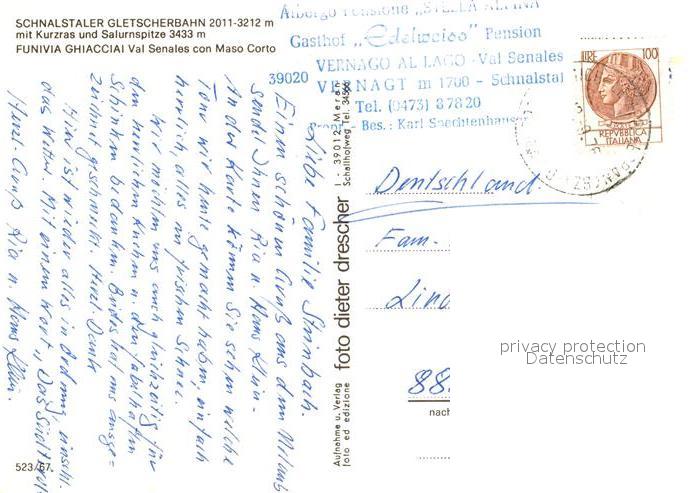 SCHNALSTALER GLETSCHERBAHN 2011-3212 m
mit Kurzras und Salurnspitze 3433 m
FUNIVIA GHIACCIAI Val Senales con Maso Corto
Albergo Pensione „STELLA ALPINA
Gasthof „Edelweiss" Pension
VERNAGO AL LAGO - Val Senales
39020 VERNAGT m 1700 - Schnalstal
Tel. (0473) 87820
Bes.: Karl Spechtenhauser
LIRE 100
REPVBBLICA
ITALIANA
Liebe Familie Steinbach.
Einen schönen Gruß aus dem Urlaub
sendet Ihnen Ria u. Hans Klein -
An der Karte können Sie sehen welche
Tour wir heute gemacht haben, einfach
herrlich alles im frischen Schnee.
Wir möchten uns auch gleichzeitig für
den herrlichen Kuchen u. den fabelhaften
Schinken bedanken. Beides hat uns ausge=
zeichnet geschmeckt. Herzl. Dank
Hier ist wieder alles in Ordnung, einschl.
das Wetter. Mit einem Wort „Das Südtirol
Herzl. Gruß Ria u. Hans Klein.
Aufnahme u. Verlag
foto ed edizione
foto dieter drescher
I - 39012 Meran
Schallhofweg Tel. 34566
Deutschland.
Fam.
Lin
88
nach
523/67
privacy protection
Datenschutz